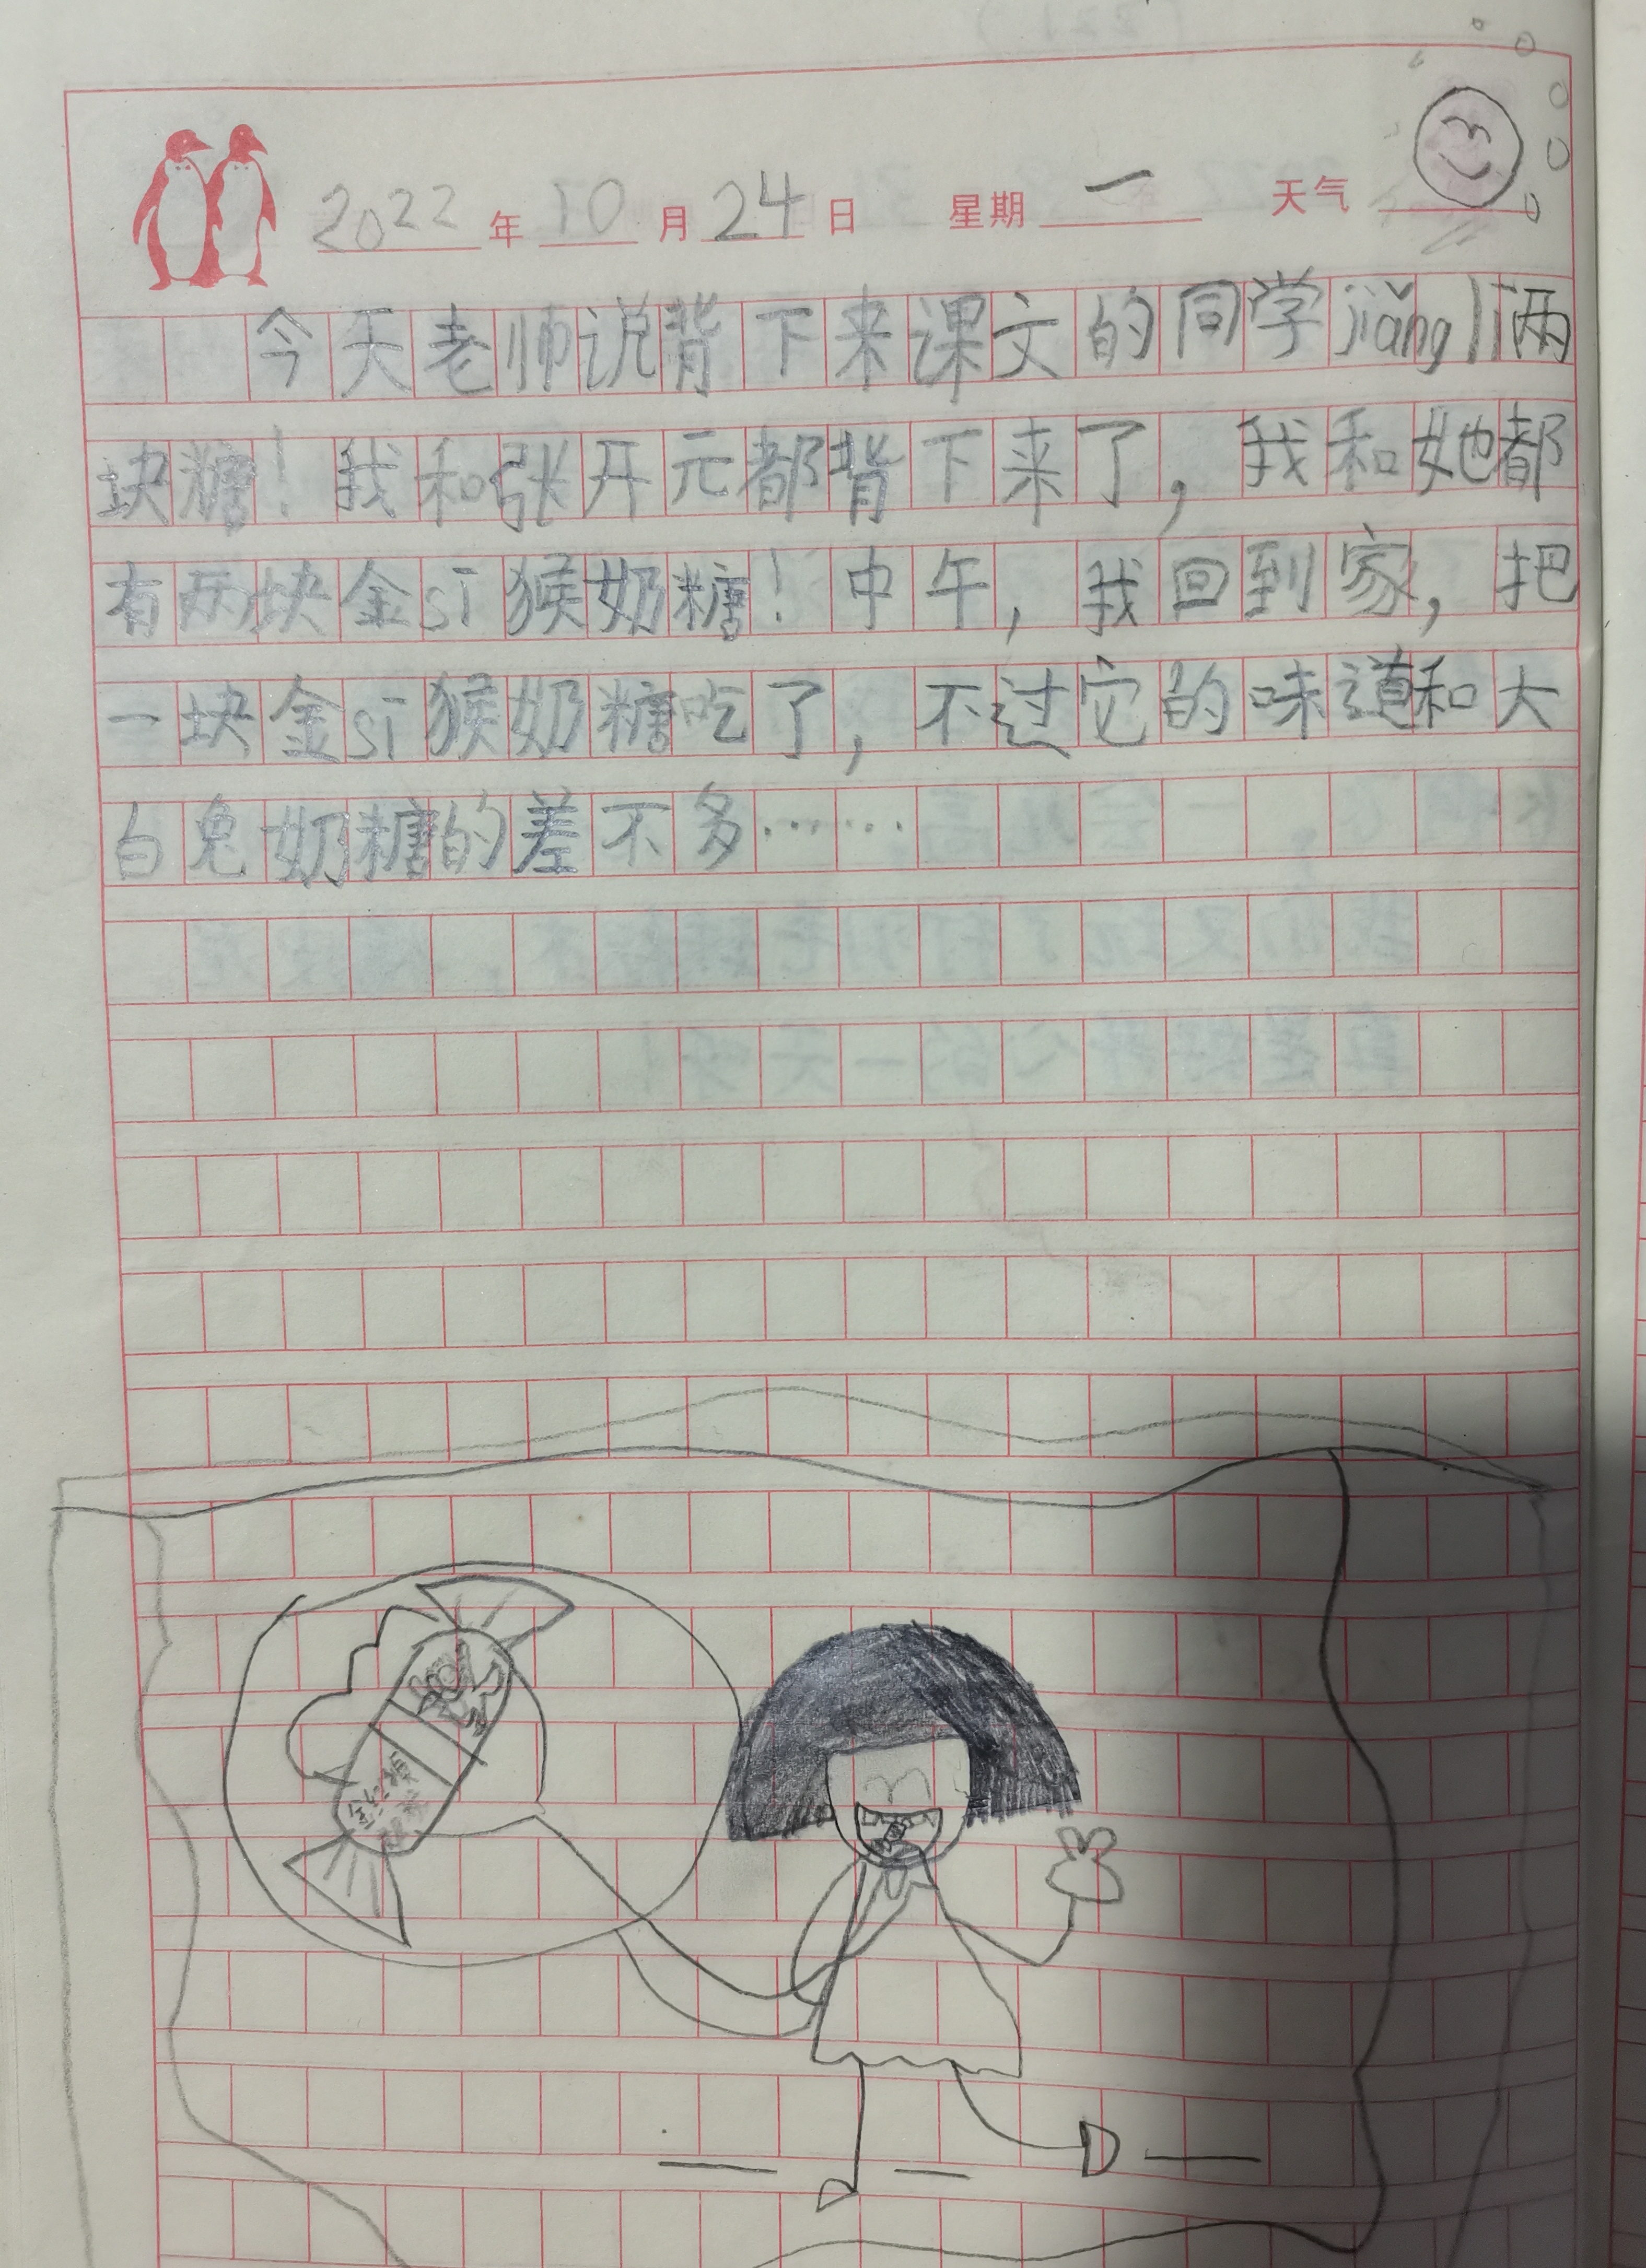 2022年10月24日 星期一 天气
今天老师说背下来课文的同学jiǎnglì两
块糖！我和张开元都背下来了，我和她都
有两块金sī猴奶糖！中午，我回到家，把
一块金sī猴奶糖吃了，不过它的味道和大
白兔奶糖的差不多……